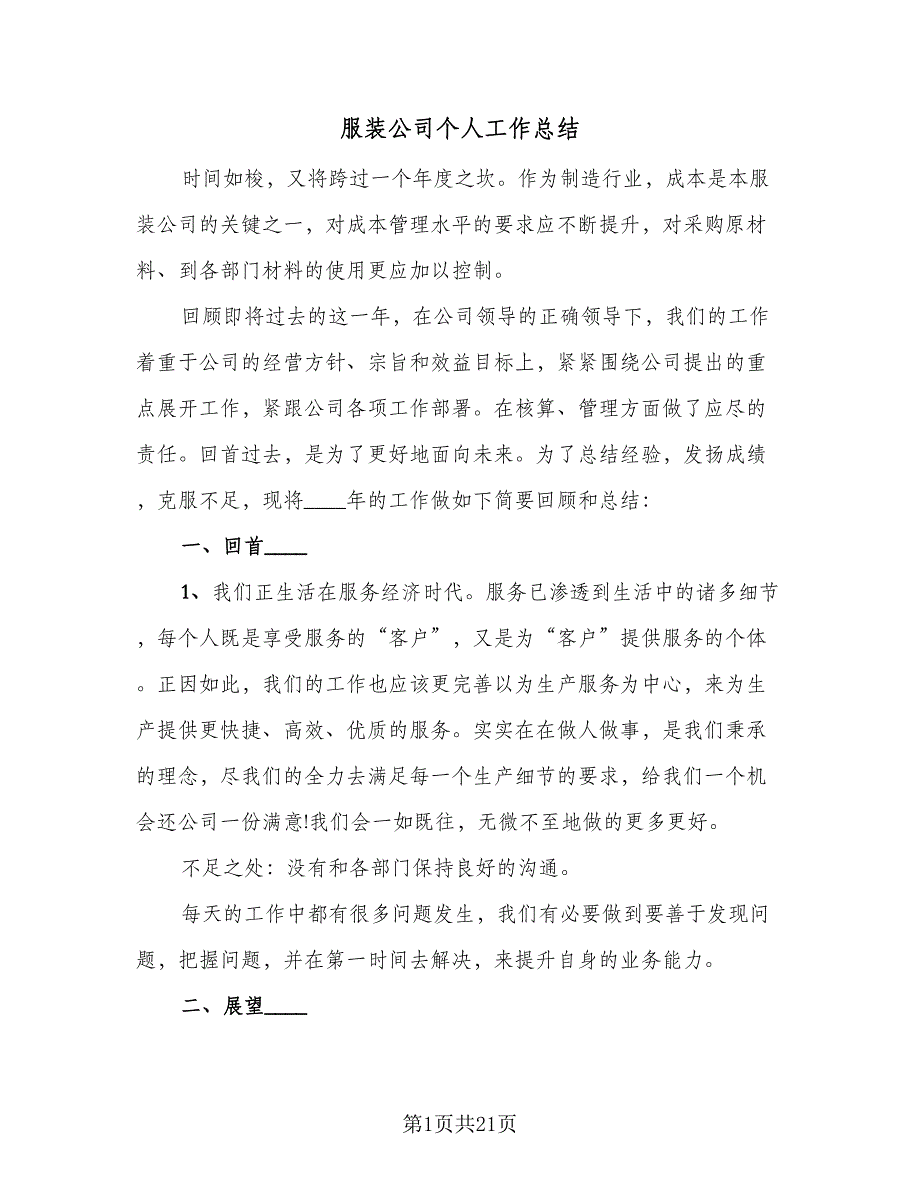 服装公司个人工作总结
时间如梭，又将跨过一个年度之坎。作为制造行业，成本是本服
装公司的关键之一，对成本管理水平的要求应不断提升，对采购原材
料、到各部门材料的使用更应加以控制。
回顾即将过去的这一年，在公司领导的正确领导下，我们的工作
着重于公司的经营方针、宗旨和效益目标上，紧紧围绕公司提出的重
点展开工作，紧跟公司各项工作部署。在核算、管理方面做了应尽的
责任。回首过去，是为了更好地面向未来。为了总结经验，发扬成绩
，克服不足，现将____年的工作做如下简要回顾和总结：
一、回首____
1、我们正生活在服务经济时代。服务已渗透到生活中的诸多细节
，每个人既是享受服务的“客户”，又是为“客户”提供服务的个体
。正因如此，我们的工作也应该更完善以为生产服务为中心，来为生
产提供更快捷、高效、优质的服务。实实在在做人做事，是我们秉承
的理念，尽我们的全力去满足每一个生产细节的要求，给我们一个机
会还公司一份满意!我们会一如既往，无微不至地做的更多更好。
不足之处：没有和各部门保持良好的沟通。
每天的工作中都有很多问题发生，我们有必要做到要善于发现问
题，把握问题，并在第一时间去解决，来提升自身的业务能力。
二、展望____
第1页共21页